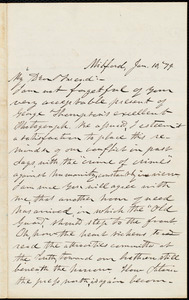 Milford, Jan. 10, '79.
My Dear Friend:-
I am not forgetful of your
very acceptable present of
George Thompson's excellent
Photograph. Me a proud, I esteem
a satisfaction to place this re-
minder of our conflict in past
days with the "crime of crimes"
against humanity, constant in view.
I am sure you will agree with
me that another hour of need
has arrived, in which the "Old
Guard" should step to the front
Oh how the heart sickens to
read the atrocities committed at
the South, toward our brethren still
beneath the
the prey north, again becom